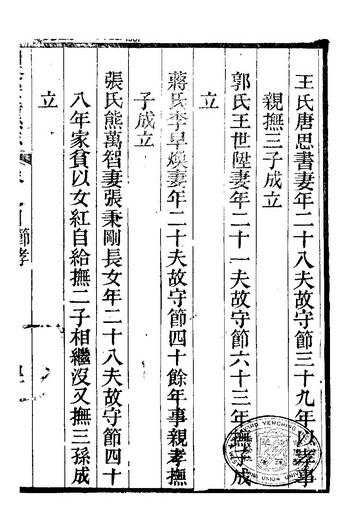 王氏唐思書妻年二十八夫故守節三十九年以孝事
親撫三子成立
郭氏王世陞妻年二十一夫故守節六十三年撫子成
立
蔣氏李早煥妻年二十夫故守節四十餘年事親孝撫
子成立
張氏熊萬智妻張秉剛長女年二十八夫故守節四十
八年家貧以女紅自給撫二子相繼沒又撫三孫成
立
節孝